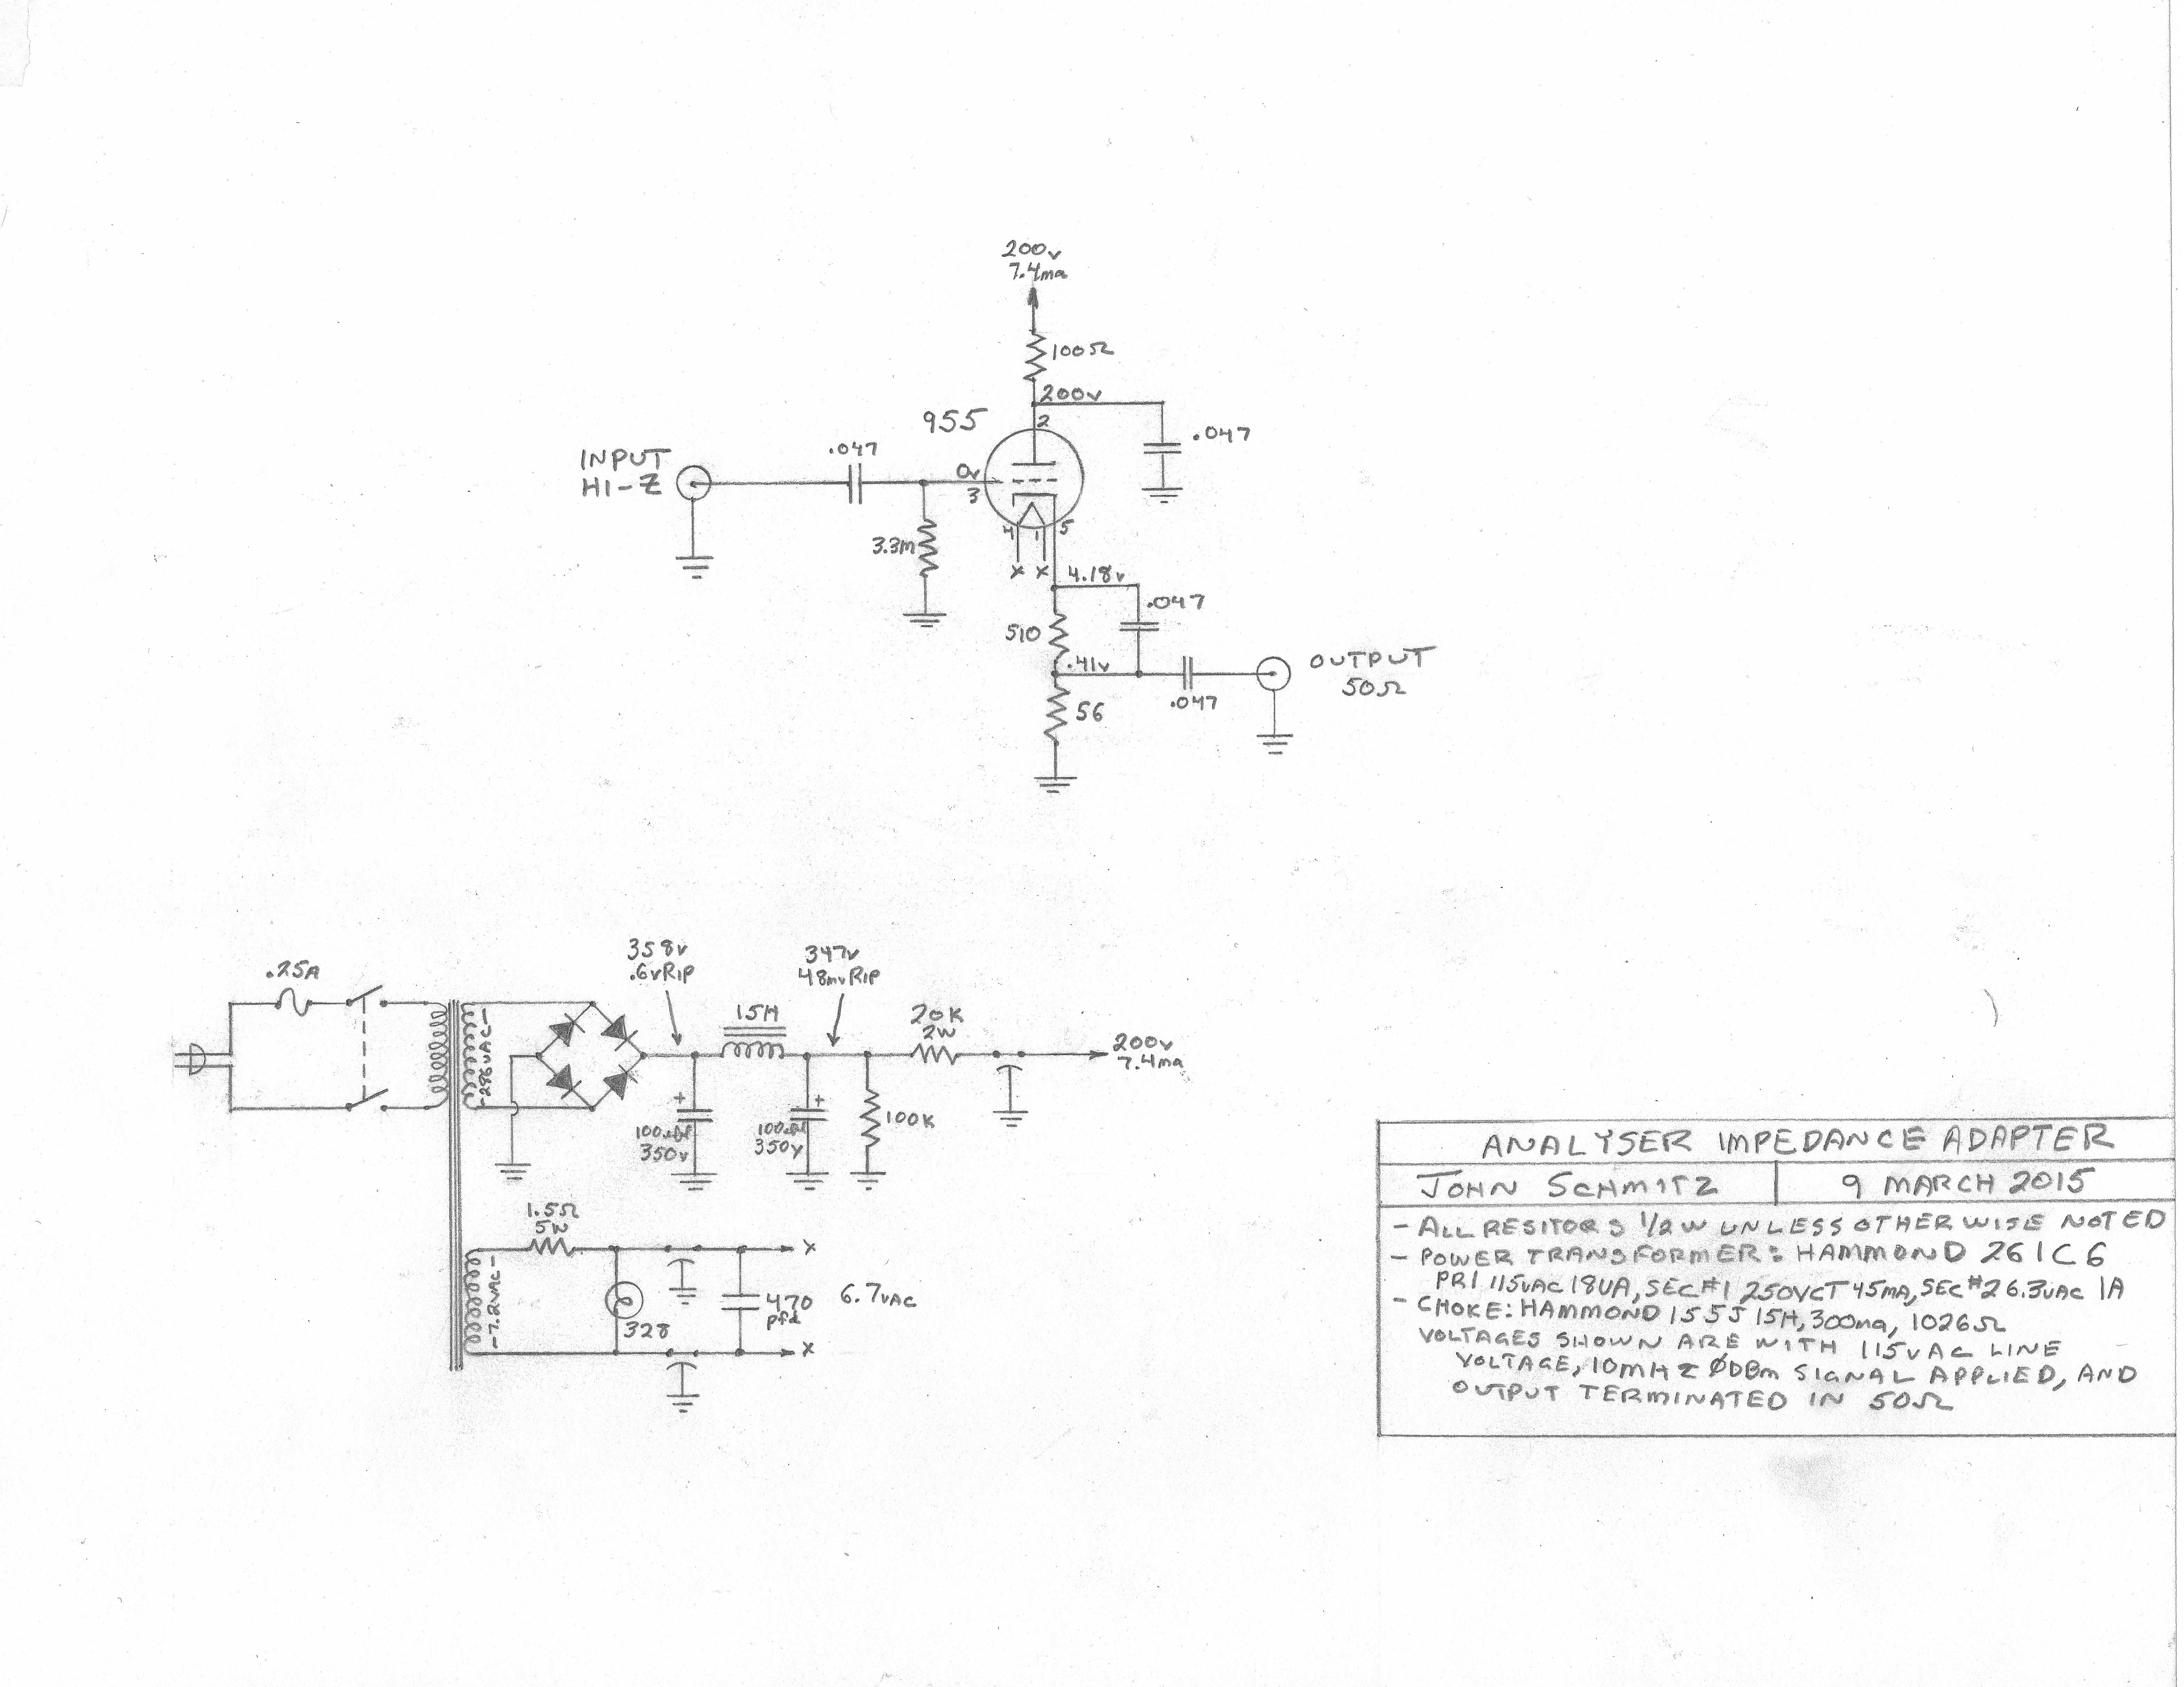 200v
7.4ma
100Ω
200v
955
2
.047
.047
INPUT
HI-Z
0v
3
4
1
5
3.3m
x x
4.18v
.047
510
.41v
OUTPUT
50Ω
.047
56
358v
.6vRIP
347v
48mvRIP
.25A
15H
20K
2W
-286VAC-
200v
7.4ma
+
+
100
350v
100
350v
100K
1.5Ω
5W
x
-7.2VAC-
470
pfd
6.7VAC
328
x
ANALYSER IMPEDANCE ADAPTER
JOHN SCHMITZ
9 MARCH 2015
- ALL RESITORS 1/2 W UNLESS OTHERWISE NOTED
- POWER TRANSFORMER: HAMMOND 261C6
PRI 115VAC 18VA, SEC#1 250VCT 45MA, SEC#2 6.3VAC 1A
- CHOKE: HAMMOND 155J 15H, 300ma, 1026Ω
VOLTAGES SHOWN ARE WITH 115VAC LINE
VOLTAGE, 10MHZ ØDBm SIGNAL APPLIED, AND
OUTPUT TERMINATED IN 50Ω